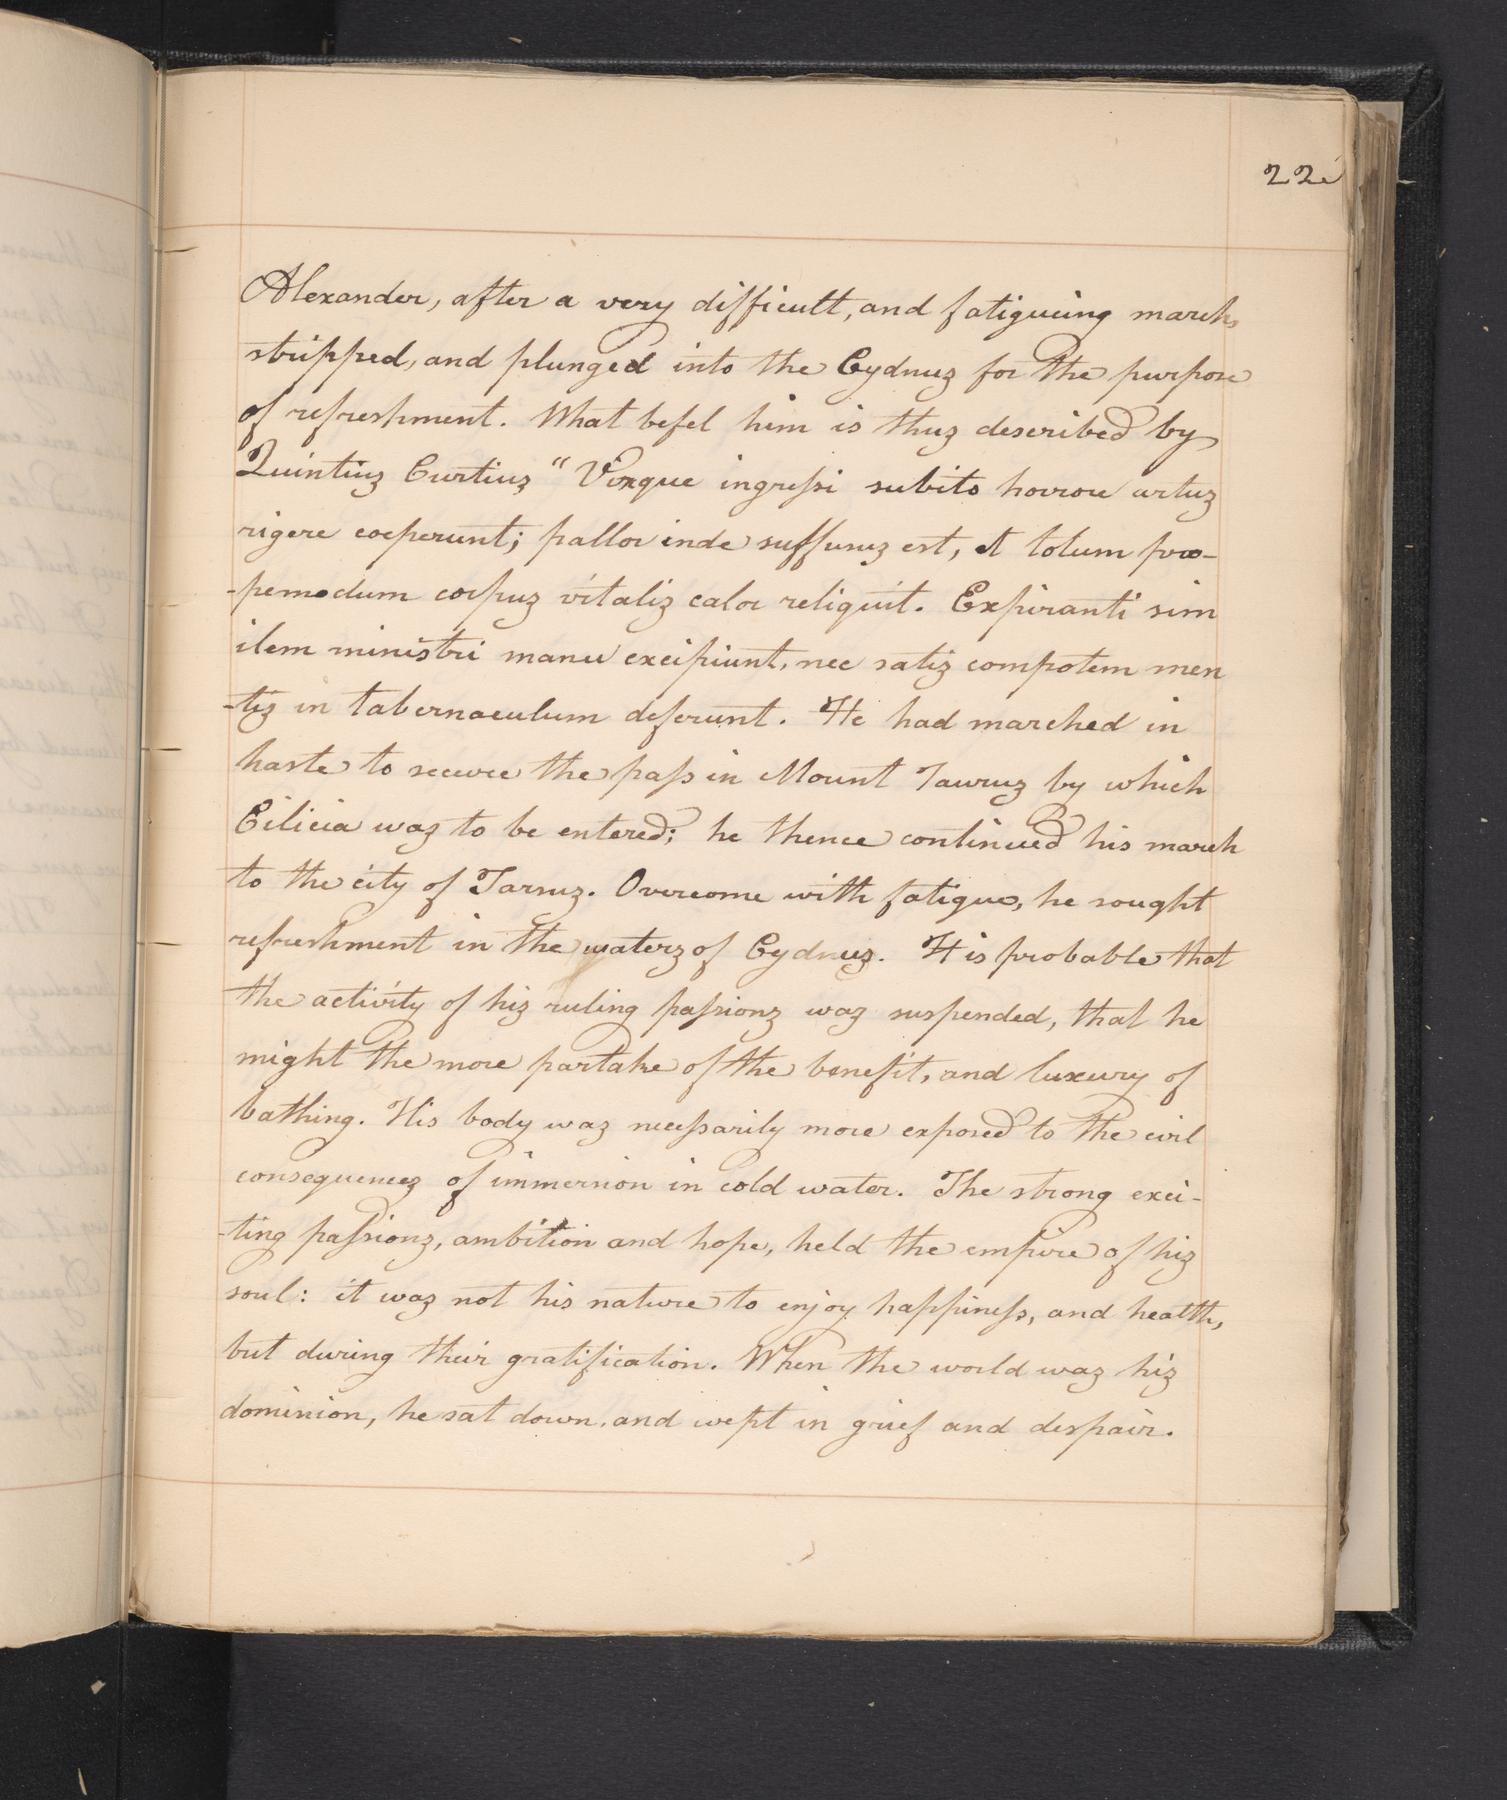 22
Alexander, after a very difficult, and fatigueing march,
stripped, and plunged into the Cydnus for the purpose
of refreshment. What befel him is thus described by
Quintius Curtius "Vixque ingressi subito horrore artus
rigere coeperunt; pallor inde suffusus est, et totum pro-
-pemodum corpus vitalis calor reliquit. Expiranti sim
ilem ministri manu excipiunt, nec satis compotem men
-tis in tabernaculum deferunt. He had marched in
haste to secure the pass in Mount Taurus by which
Cilicia was to be entered; he thence continued his march
to the city of Tarsus. Overcome with fatigue, he sought
refreshment in the waters of Cydnus. It is probable that
the activity of his ruling passions was suspended, that he
might the more partake of the benefit, and luxury of
bathing. His body was necessarily more exposed to the evil
consequences of immersion in cold water. The strong exci-
-ting passions, ambition and hope, held the empire of his
soul: it was not his nature to enjoy happiness, and health,
but during their gratification. When the world was his
dominion, he sat down, and wept in grief and despair.